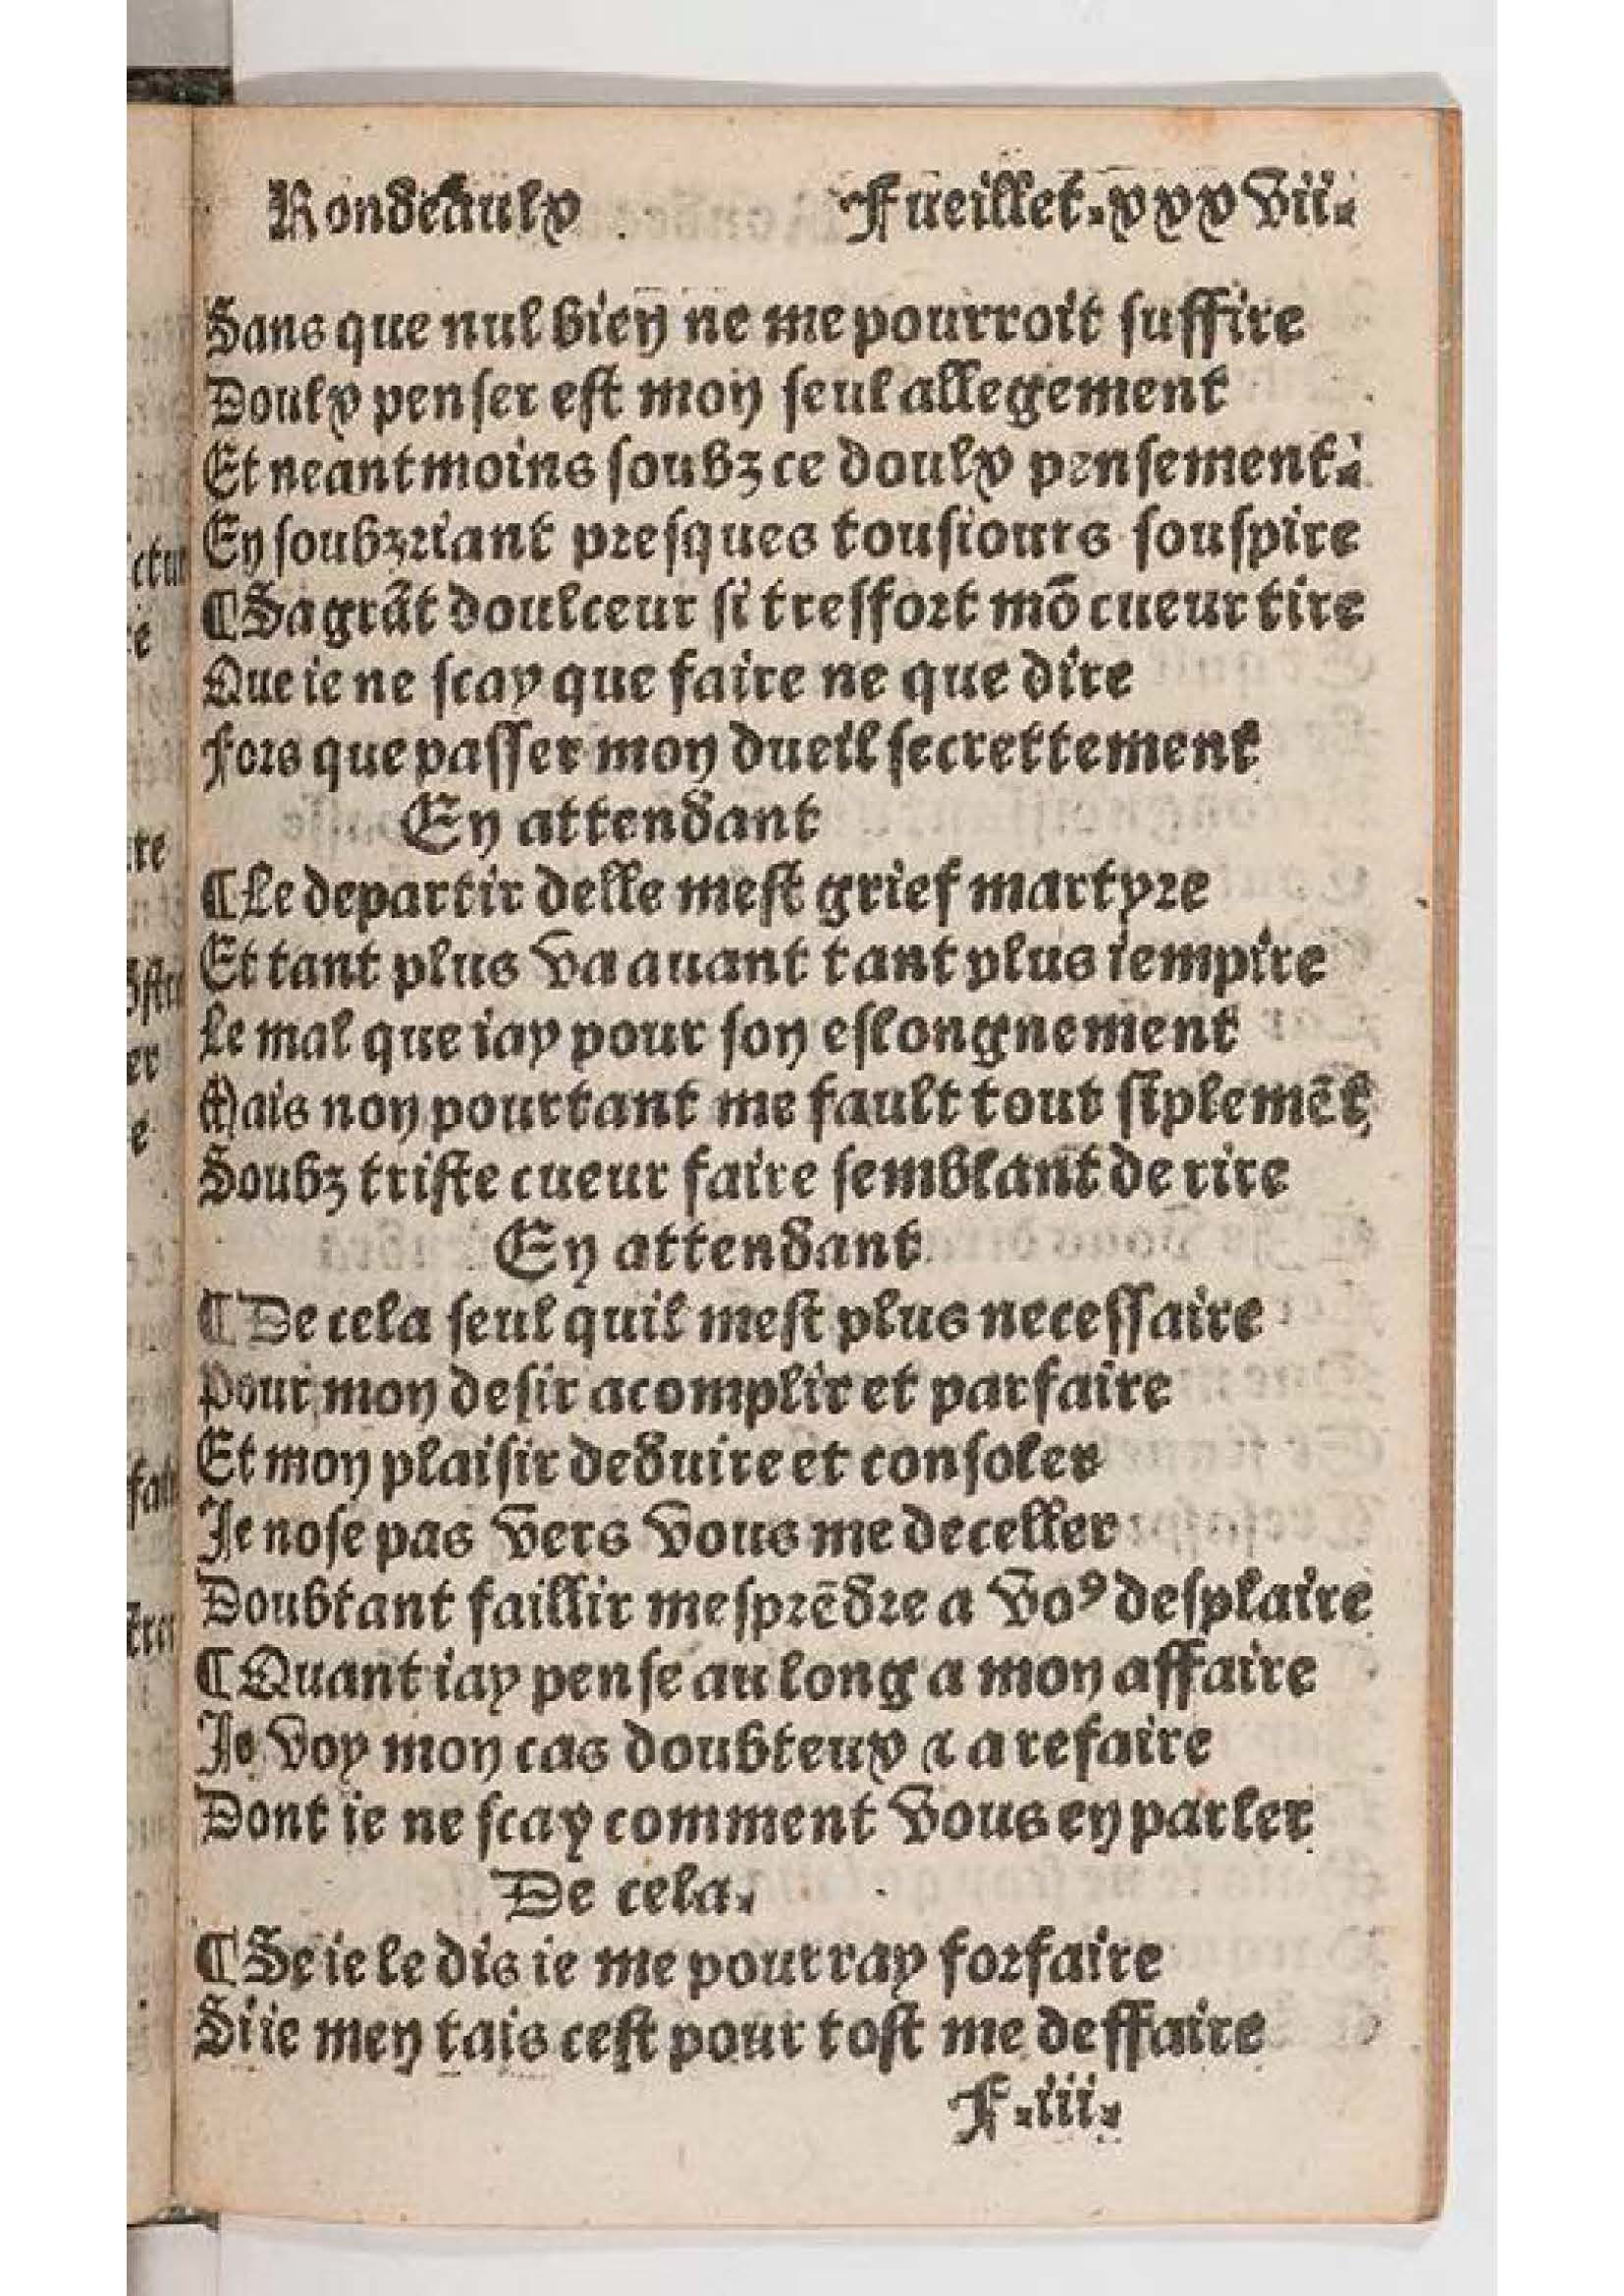 Rondeaulx Fueillet.xxxvii.
Sans que nul bien ne me pourroit suffire
Doulx penser est mon seul allegement
Et neantmoins soubz ce doulx pensement.
En soubzriant presques tousiours souspire
¶Sa grãt doulceur si tresfort mõ cueur tire
Que ie ne scay que faire ne que dire
Fors que passer mon dueil secrettement
En attendant
¶Le departir delle mest grief martyre
Et tant plus va auant tant plus iempire
Le mal que iay pour son eslongnement
Mais non pourtant me fault tout sĩplemẽt
Soubz triste cueur faire semblant de rire
En attendant
¶De cela seul quil mest plus necessaire
Pour mon desir acomplir et parfaire
Et mon plaisir deduire et consoler
Je nose pas vers vous me deceller
Doubtant faillir mesprẽdre a voꝰ desplaire
¶Quant iay pense au long a mon affaire
Je voy mon cas doubteux ⁊ a refaire
Dont ie ne scay comment vous en parler
De cela.
¶Se ie le dis ie me pourray forfaire
Si ie men tais cest pour tost me deffaire
F.iii.